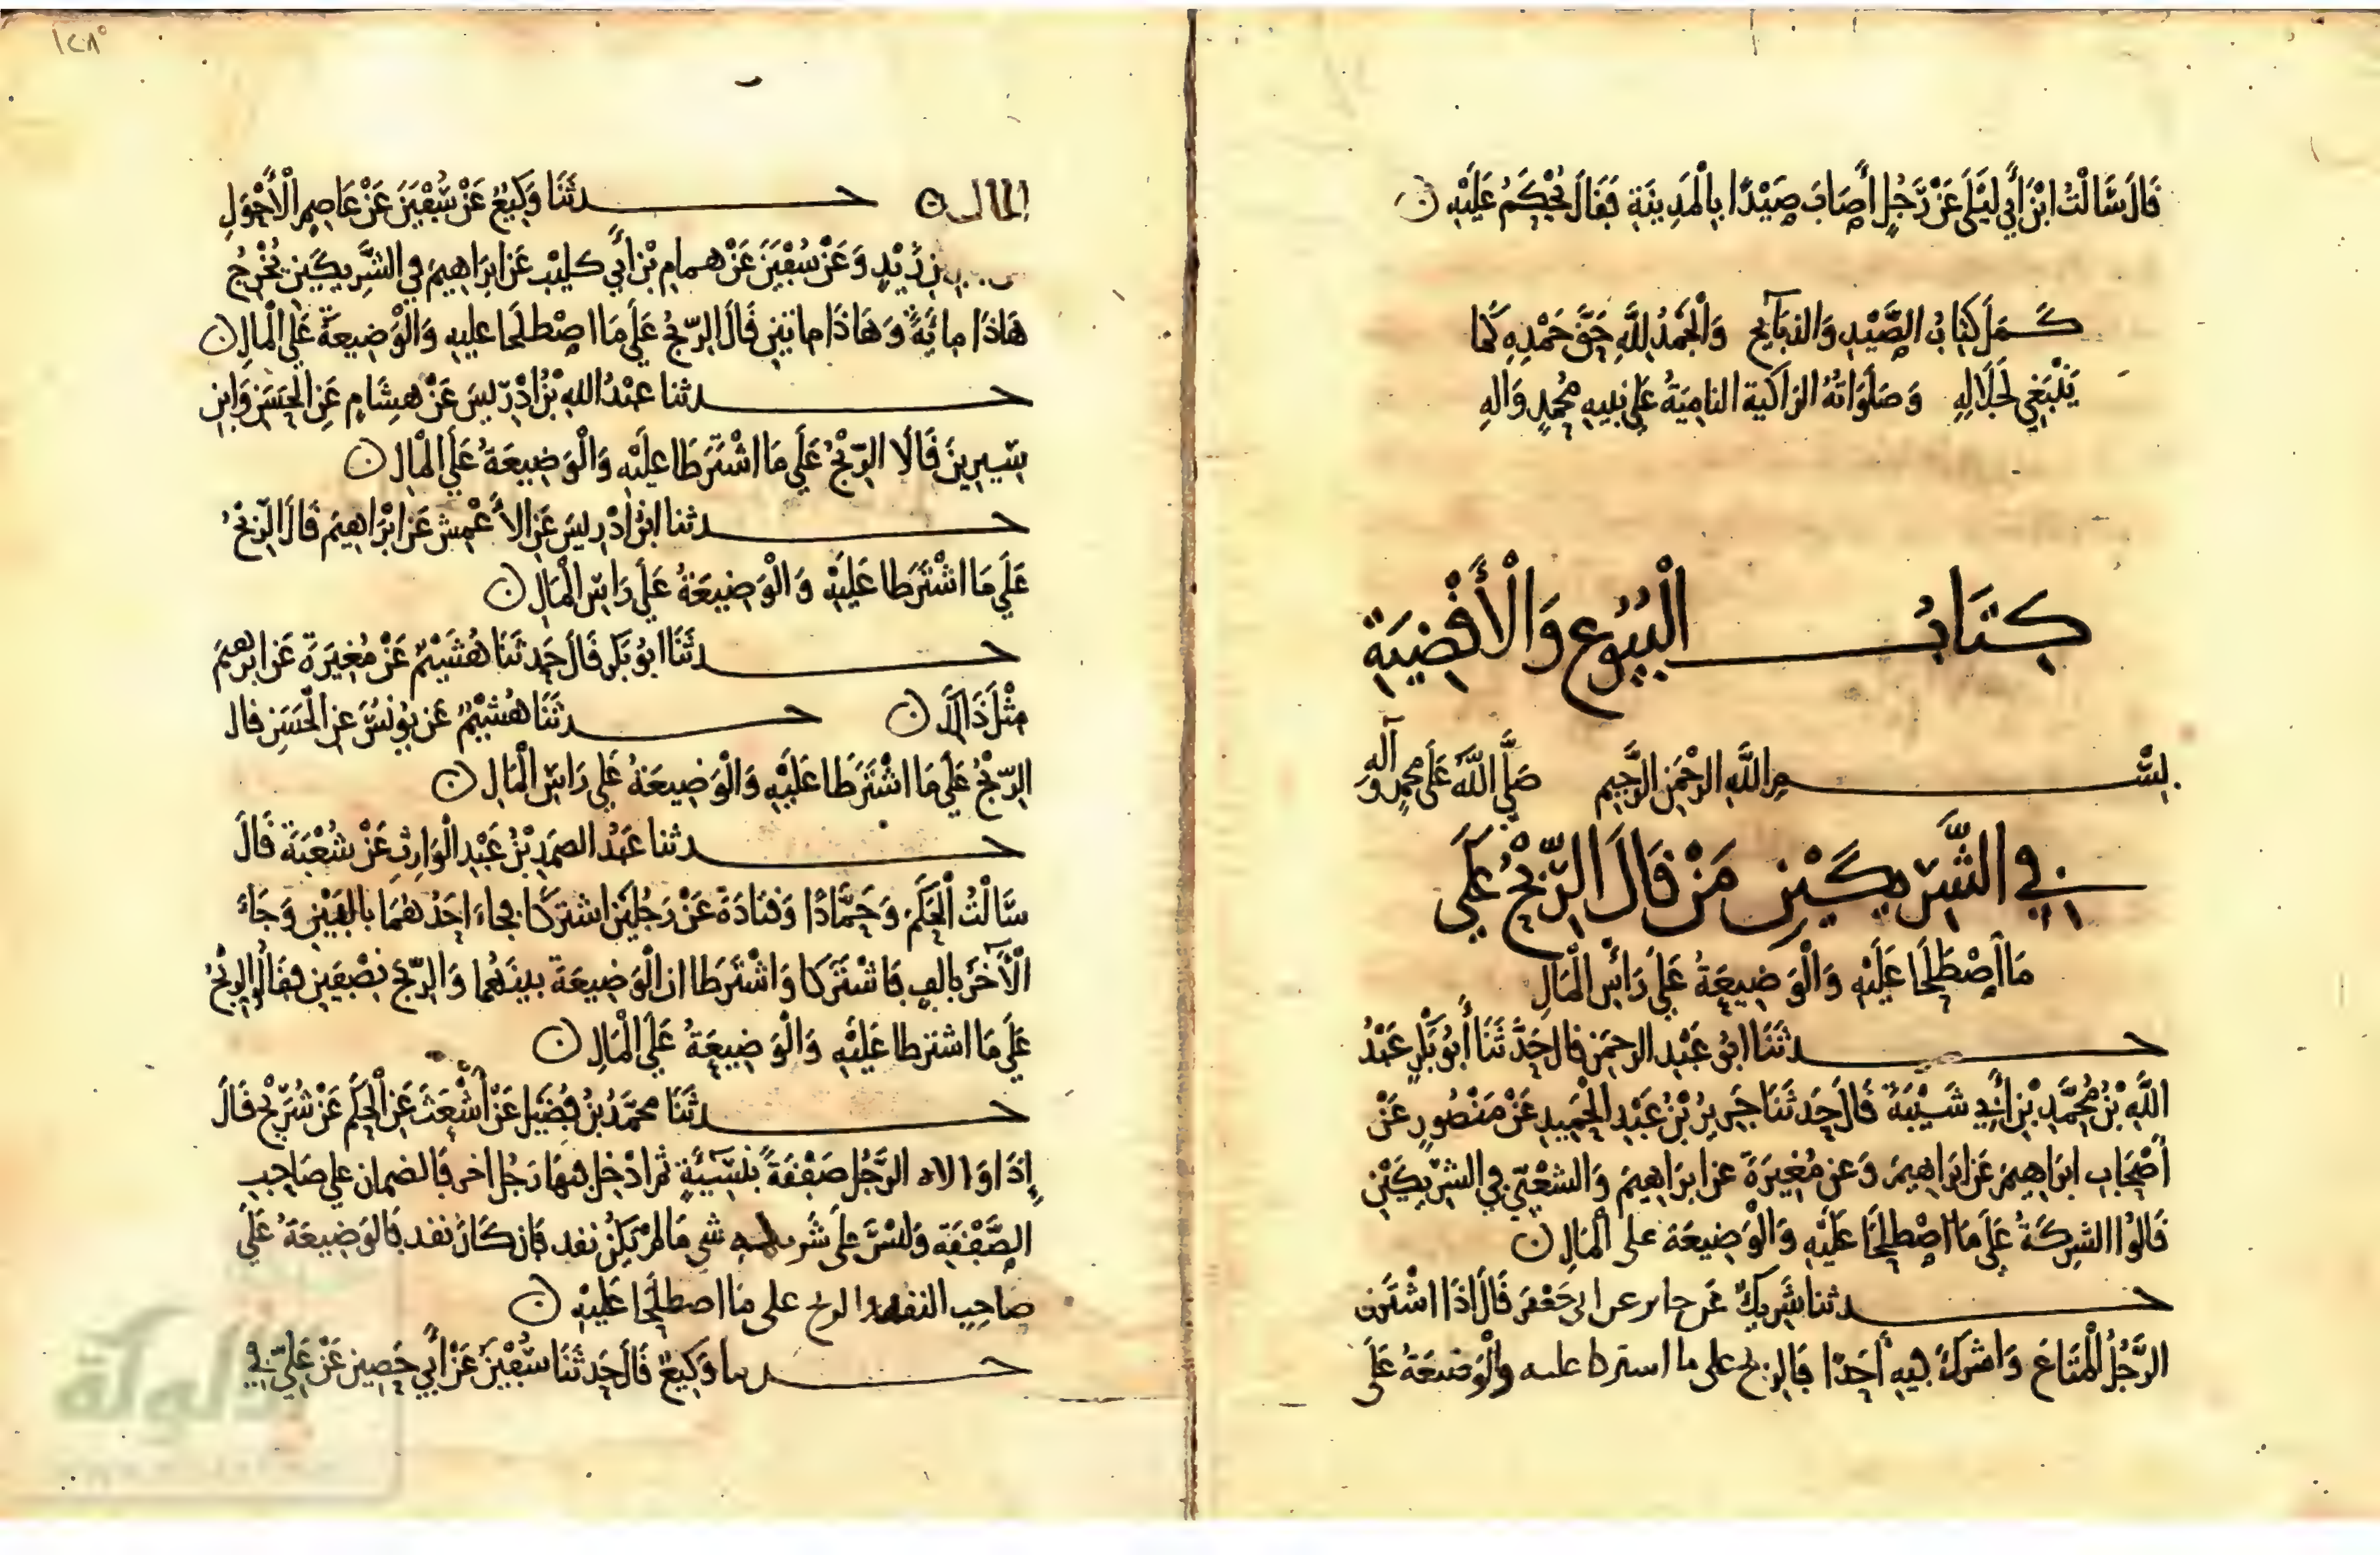 قَالَ سَأَلْتُ ابْنَ أَبِي لَيْلَى عَنْ رَجُلٍ أَصَابَ صَيْدًا بِالْمَدِينَةِ فَقَالَ يُحْكَمُ عَلَيْهِ ن
كَمَلَ كِتَابُ الصَّيْدِ وَالذبَائِحِ وَالْحَمْدُ لِلَّهِ حَقَّ حَمْدِهِ كَمَا
يَنْبَغِي لِجَلَالِهِ وَصَلَوَاتُهُ الزاكية النامِيَةُ عَلَى نبيهِ مُحَمدٍ وَالِهِ
كِتَابُ الْبُيُوعِ وَالْأَقْضِيَةِ
بِسْمِ اللَّهِ الرَّحْمَنِ الرَّحِيمِ صَلَّى اللَّهُ عَلَى مُحمدٍ وآلِهِ
فِي الشَّرِيكَيْنِ مَنْ قَالَ الرِّبْحُ عَلَى
مَا اصْطَلَحَا عَلَيْهِ وَالْوَضِيعَةُ عَلَى رَأْسِ الْمَالِ
حدثَنَا ابُو عَبْدِ الرحمَنِ قال حَدَّثَنَا أَبُو بَكْرٍ عَبْدُ
اللَّهِ بْنُ مُحَمَّدِ بْنِ أَبِي شَيْبَةَ قَالَ حَدثَنَا جَرِيرُ بْنُ عَبْدِ الْحَمِيدِ عَنْ مَنْصُورٍ عَنْ
أَصْحَابِ ابرَاهِيمَ عَنِ ابرَاهِيمَ وَعَن مُغِيرَةَ عن ابرَاهِيمَ وَالشعْبِيِّ فِي الشَّرِيكَيْنِ
قَالُوا الشرِكَةُ عَلَى مَا اصْطَلَحَا عَلَيْهِ وَالْوَضِيعَةُ على الْمَالِ ن
حدثنا شَرِيكٌ عَن جابر عن ابى جَعْفَر قَالَ اذَا اشْتَرى
الرَّجُلُ الْمَتَاعَ وَاشْرَكَ فِيهِ أَحَدًا فَالربح على ما اشترطا عليه والْوَضِيعَةُ عَلَى
المال ن حدثَنَا وَكِيعٌ عَنْ سُفْيَنَ عَنْ عَاصِمٍ الْأَحْوَلِ
بن زَيْدٍ وَعَنْ سُفْيَنَ عَنْ هِمامِ بْنِ أَبِي كليب عَن ابرَاهِيمَ فِي الشَّرِيكَيْنِ يُخْرِجُ
هَاذَا مِائَةً وَهَاذَا مائتين قَالَ الرِّبْحُ عَلَى مَا اصْطَلَحَا عليهِ وَالْوَضِيعَةُ عَلَى الْمَالِ ن
حدثنا عبْدُ اللهِ بْنُ ادْرِيسَ عَنْ هِشَامٍ عَنِ الْحَسَنِ وَابْنِ
سِيرِينَ قَالَا الرِّبْحُ عَلَى مَا اشْتَرَطَا عَلَيْهِ وَالْوَضِيعَةُ عَلَى الْمَالِ ن
حدثنا ابنُ ادْرِيسَ عَنِ الأَعْمشِ عَن ابْرَاهِيمَ قَالَ الرِّبْحُ
عَلَى مَا اشْتَرَطا عَلَيْهِ وَالْوَضِيعَةُ عَلَى رَاسِ الْمَالِ ن
حدثَنَا ابُو بَكْرٍ قَالَ حَدثَنَا هُشَيْمٌ عَنْ مُغِيرَةَ عَن ابرَهِيمَ
مِثْلَ ذَالِكَ ن حدثَنَا هُشَيْمٌ عَن يُونُسَ عنِ الْحَسَنِ قال
الرِّبْحُ عَلَى مَا اشْتَرَطَا عَلَيْهِ وَالْوَضِيعَةُ عَلَى رَاسِ الْمَالِ ن
حدثنا عَبْدُ الصمَدِ بْنُ عَبْدِ الْوَارِثِ عَنْ شُعْبَةَ قَالَ
سَأَلْتُ الْحَكَمَ وَحَمَّادًا وَقَتَادَةَ عَنْ رَجُلَيْنِ اشترَكَا فجاءَ احَدُهُمَا بالفَيْنِ وَجَاءَ
الْآخَرُ بِالفٍ فَاشْتَرَكَا وَاشْتَرَطَا ان الْوَضِيعَةَ بينَهُما وَالرِّبْحَ نِصْفَيْنِ فقَالُوا الرِّبْحُ
عَلَى مَا اشترطا عَلَيْهِ وَالْوَضِيعَةُ عَلَى الْمَالِ ن
حدثَنَا محمَّدُ بنُ فُضَيْلٍ عَنْ أَشْعَثَ عَنِ الْحَكَمِ عَنْ شُرَيْحٍ قَالَ
إِذَا الرَّجُل صَفْقَةً بنَسِيئَةٍ ثم ادْخل فيهَا رَجُلا اخر فَالضمان على صَاحِبِ
الصَّفْقَةِ وَلَيْسَ على شَريكه شي مَا لَمْ يَكُنْ نقد فَان كَانَ نقد فَالوَضِيعَةُ عَلَى
صاحِبِ النقد والربح على مَا اصطَلَحَا عَلَيْهِ ن
حدثنا وَكِيعٌ قَالَ حَدثَنَا سُفْيَنُ عَنْ أَبِي حَصِينٍ عَنْ عَلِيٍّ فِي
الألوكة